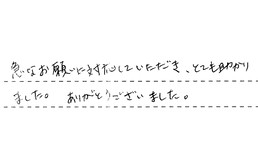 急なお願いに対応していただき、とても助かり
ました。 ありがとうございました。